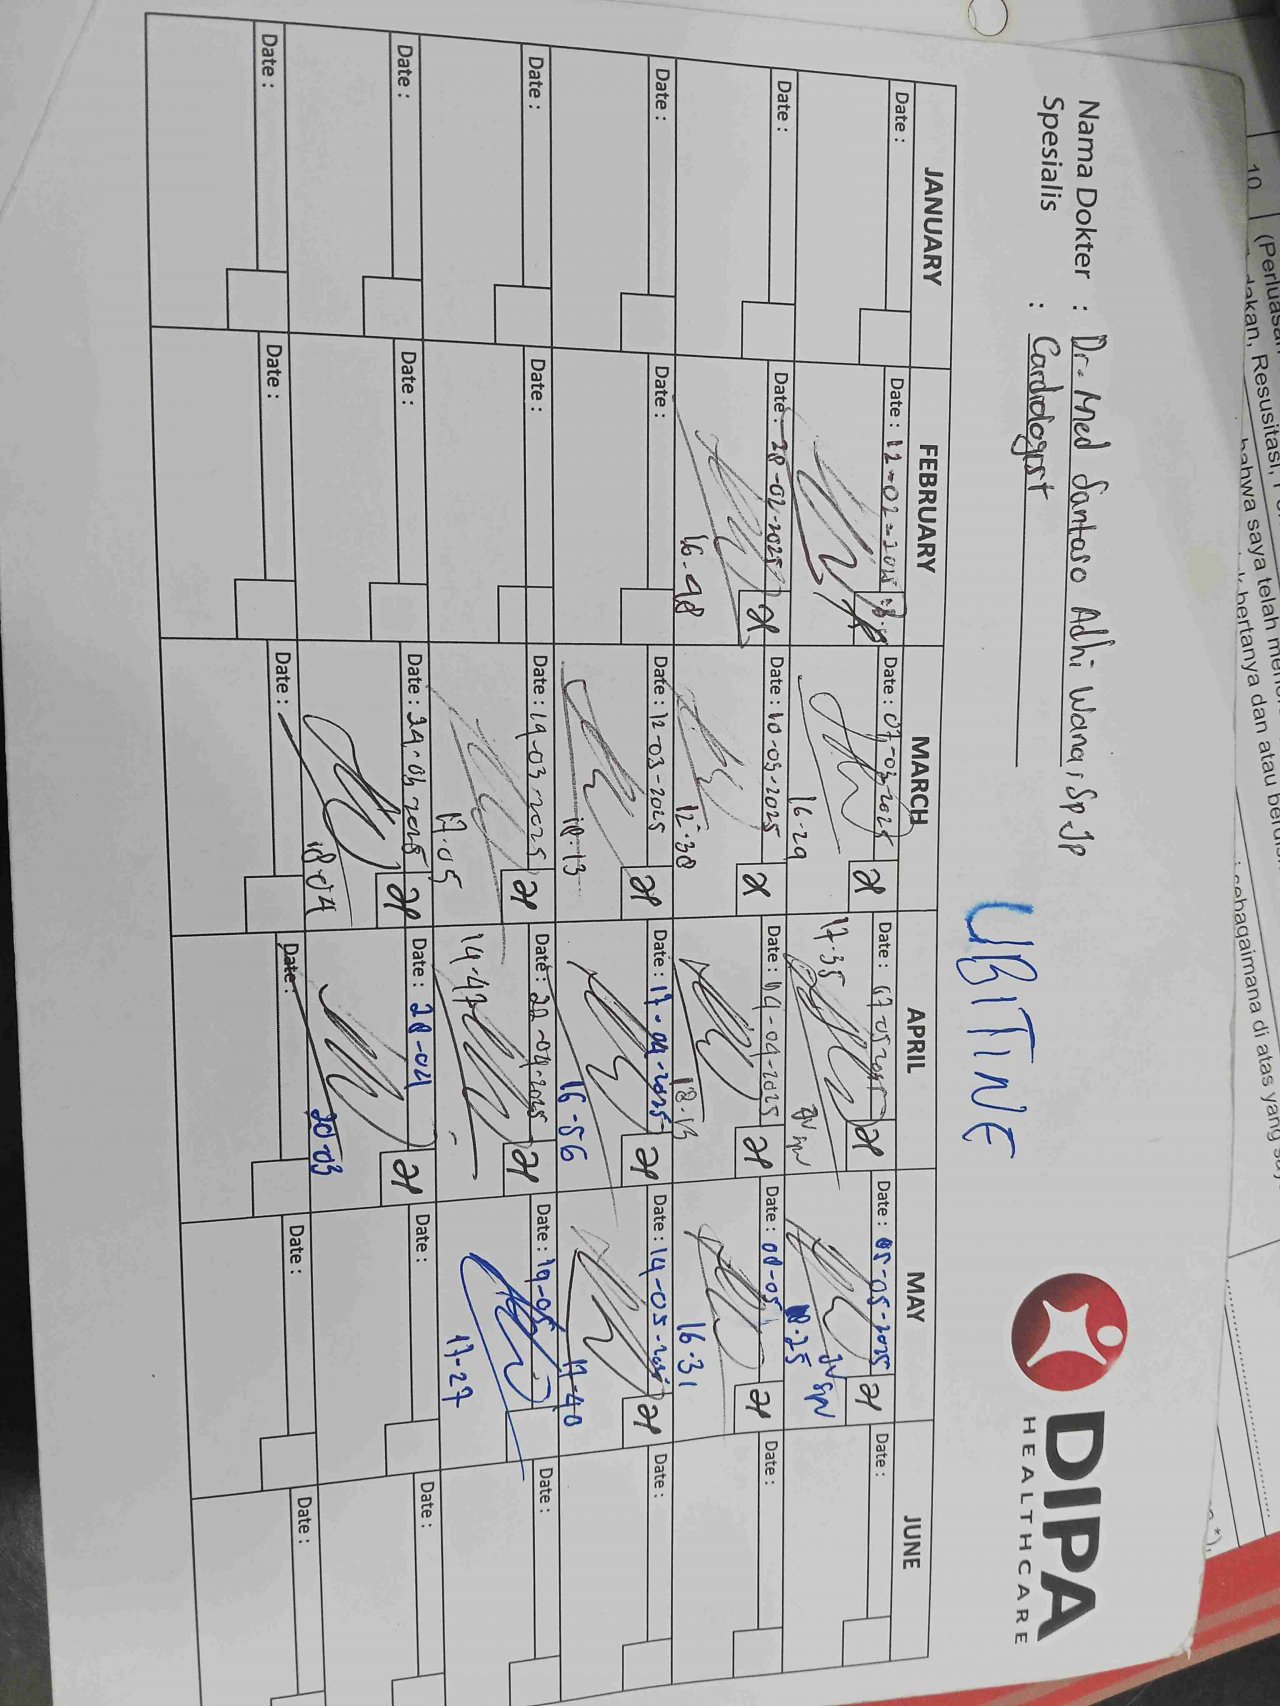 Nama Dokter : Dr. Med Santoso Adhi Wana, SpJp
Spesialis : Cardiologist
UBITINE
DIPA
HEALTHCARE
JANUARY FEBRUARY MARCH APRIL MAY JUNE
Date : Date : 12-02-2025 Date : 07-03-2025 Date : Date : 05-05-2025 Date :
16-29 17-35 18-25
Date : Date : 28-02-2025 Date : 10-03-2025 Date : 14-04-2025 Date : 08-05 Date :
16-48 12-38 18-13 16-31
Date : Date : Date : 12-03-2025 Date : 17-04-2025 Date : 14-05-2025 Date :
18-13 16-56 17-40
Date : Date : Date : 19-03-2025 Date : 22-04-2025 Date : 19-05 Date :
17-05 14-47 17-27
Date : Date : Date : 24-03-2025 Date : 28-04 Date : Date :
18-04 20-03
Date : Date : Date : Date : Date : Date :
10
(Perluasan
dakan, Resusitasi,
bahwa saya telah
bertanya dan atau
sebagaimana di atas yang